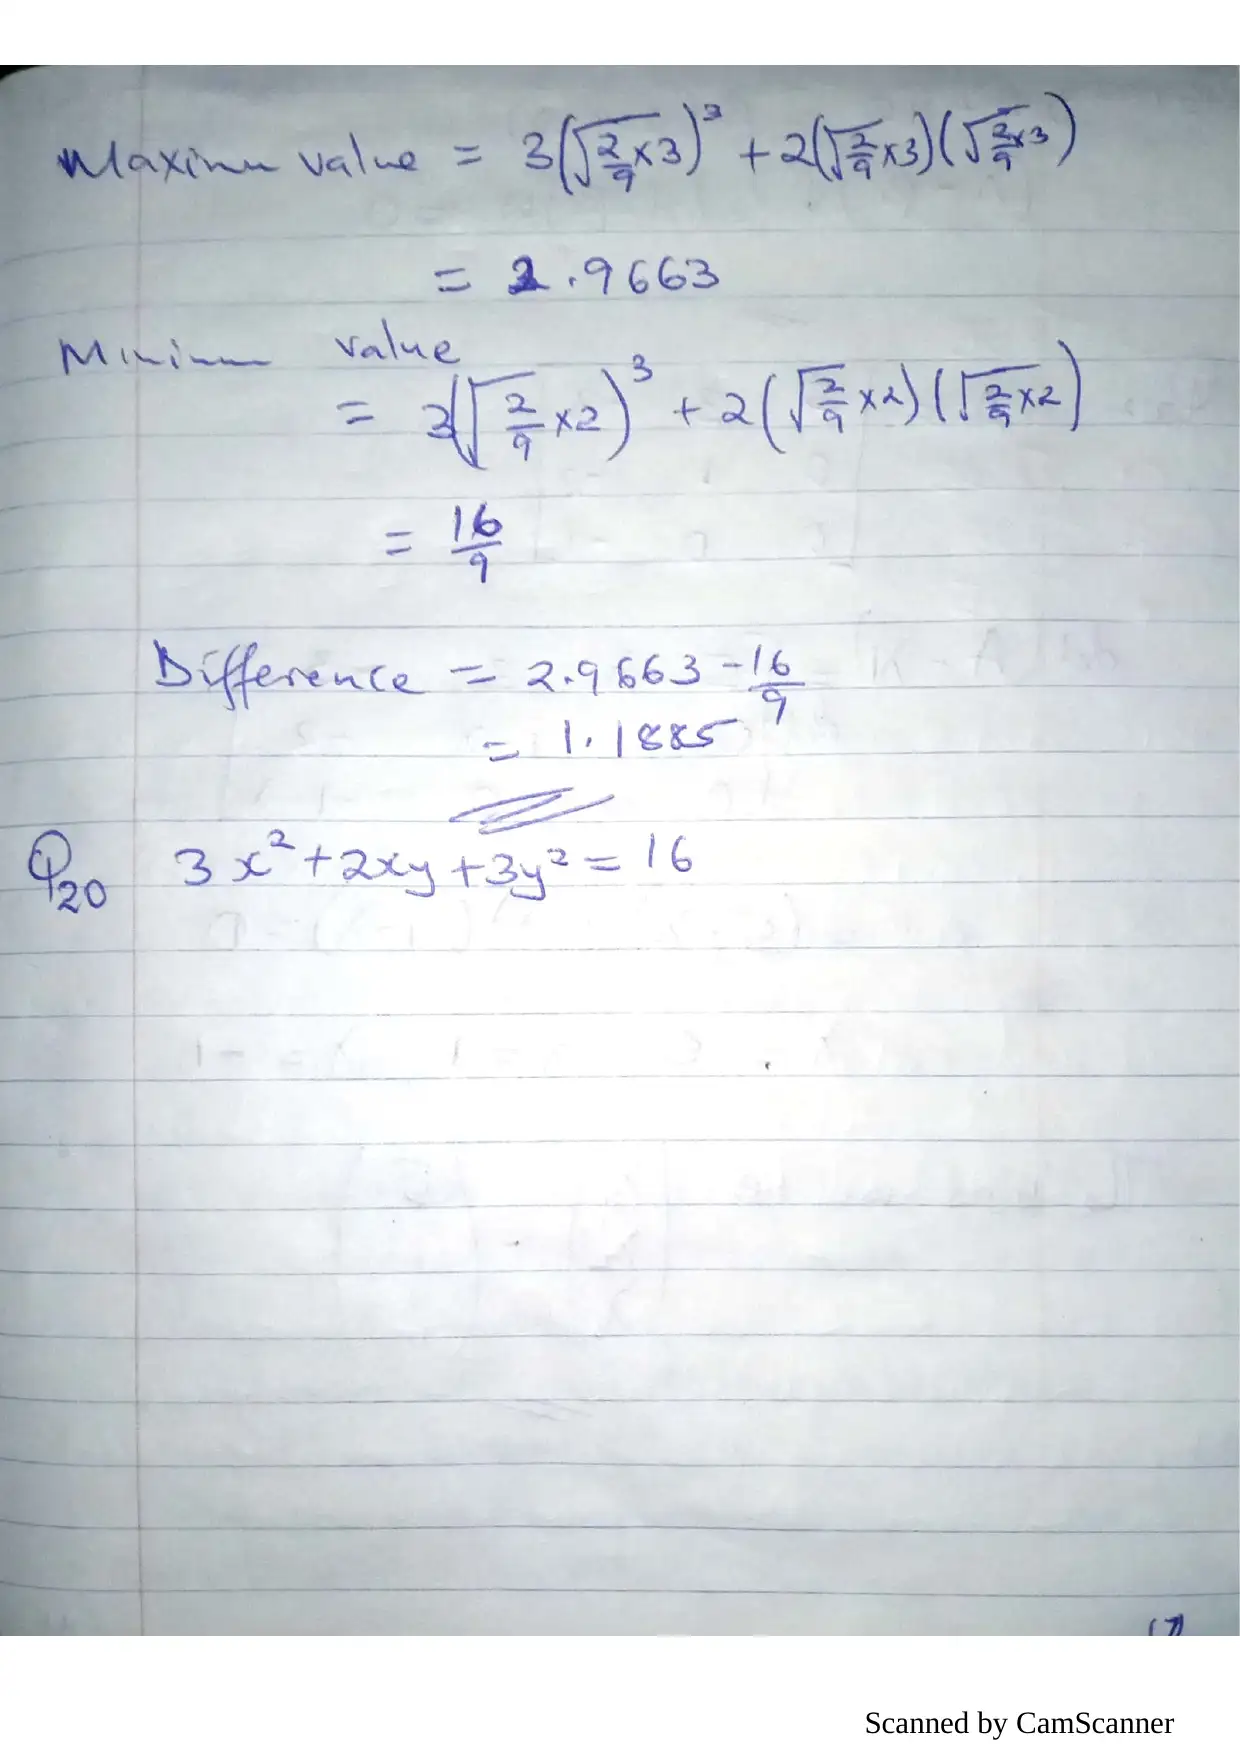 Maximum value = 3(√2/9 x 3)³ + 2(√2/9 x 3)(√2/9 x 3)
= 2.9663
Minimum value
= 3(√2/9 x 2)³ + 2(√2/9 x 2)(√2/9 x 2)
= 16/9
Difference = 2.9663 - 16/9
= 1.1885
Q20 3x² + 2xy + 3y² = 16
Scanned by CamScanner